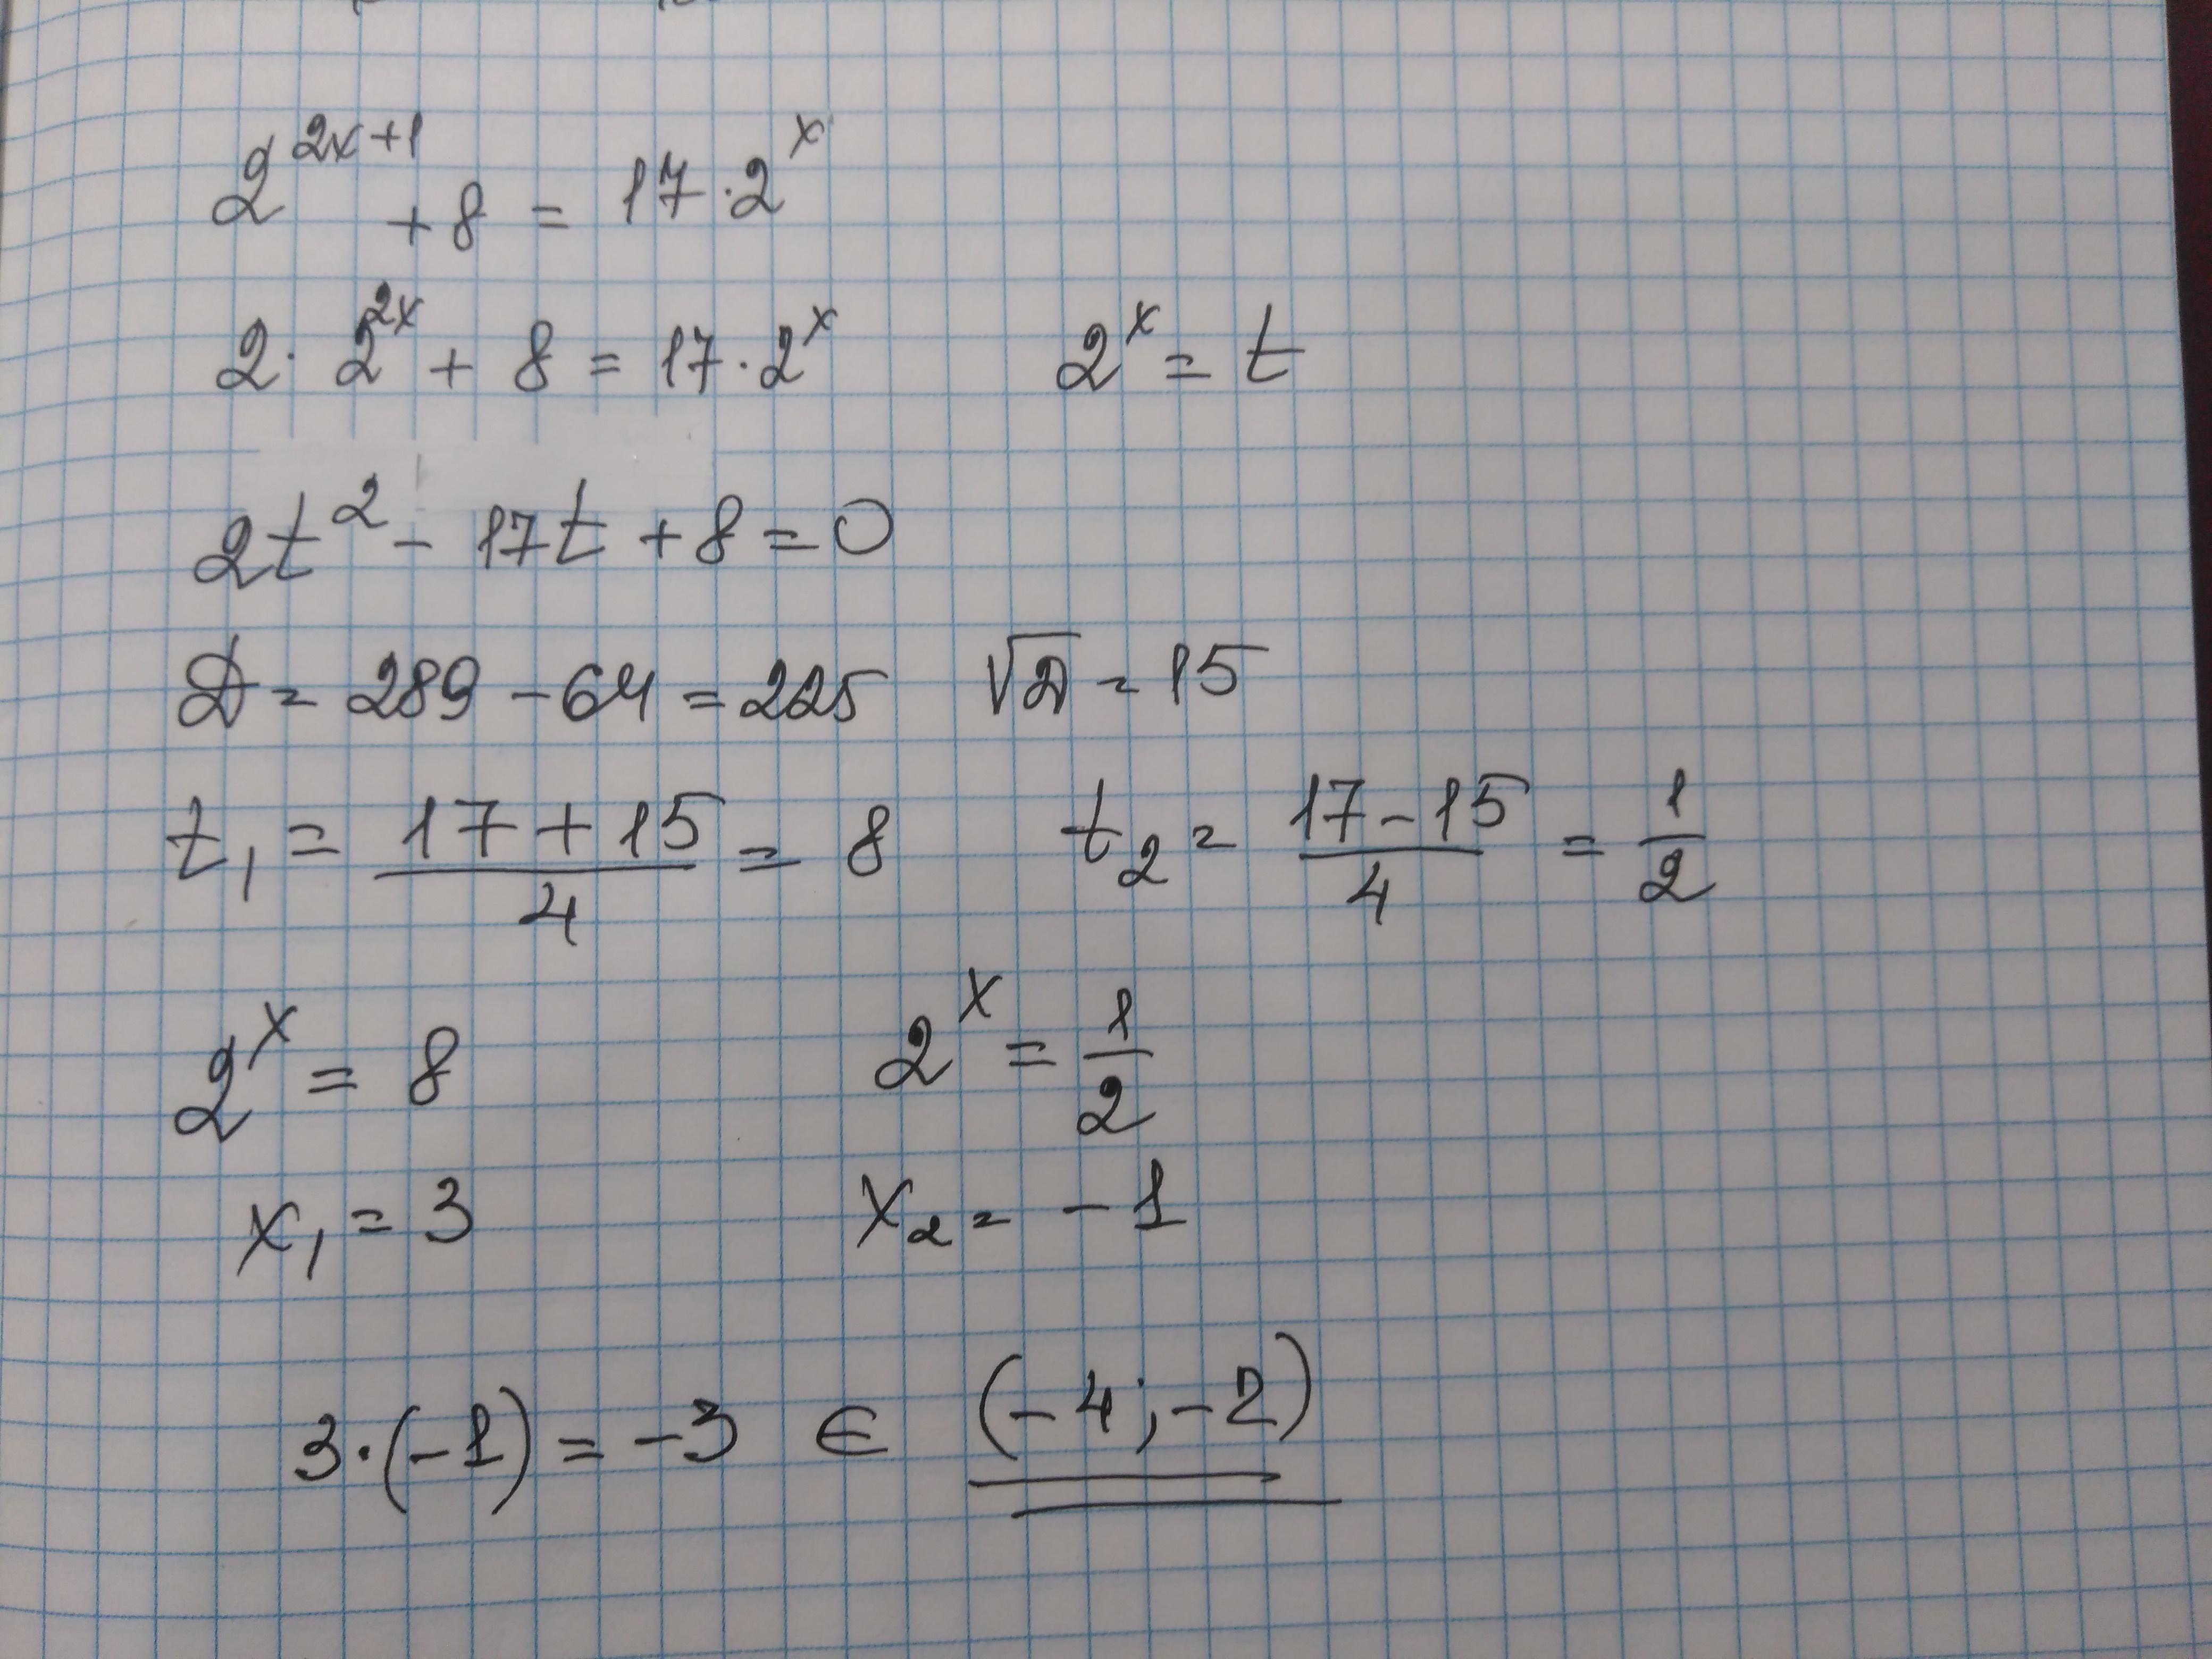 2^{2x+1} + 8 = 17 · 2^x
2 · 2^{2x} + 8 = 17 · 2^x 2^x = t
2t^2 - 17t + 8 = 0
D = 289 - 64 = 225 √D = 15
t_1 = \frac{17 + 15}{4} = 8 t_2 = \frac{17 - 15}{4} = \frac{1}{2}
2^x = 8 2^x = \frac{1}{2}
x_1 = 3 x_2 = -1
3 · (-1) = -3 ∈ (-4; -2)